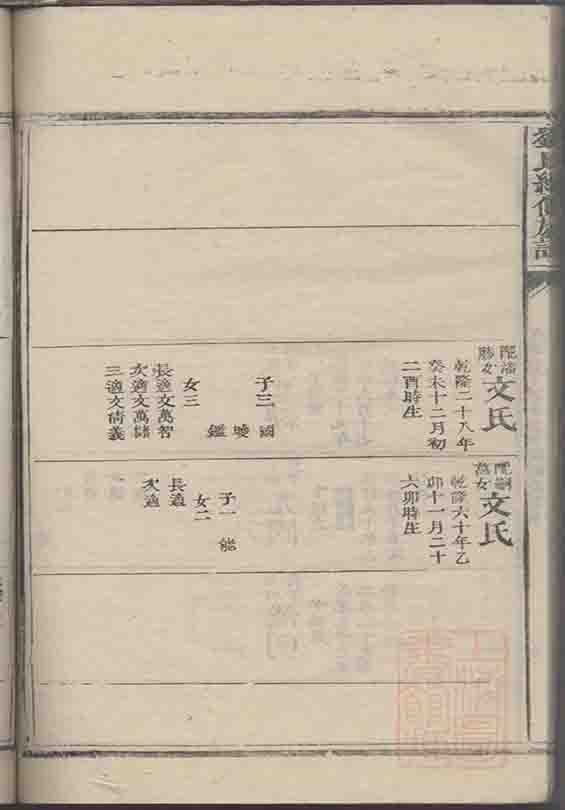 配潘
勝女
文氏
乾隆二十八年
癸未十二月初
二酉時生
子三 國
鑑
女三
長適文萬智
次適文萬儲
三適文尚義
配嗣
萬女
文氏
乾隆六十年乙
卯十一月二十
六卯時生
子一 能
女二
長適
次適